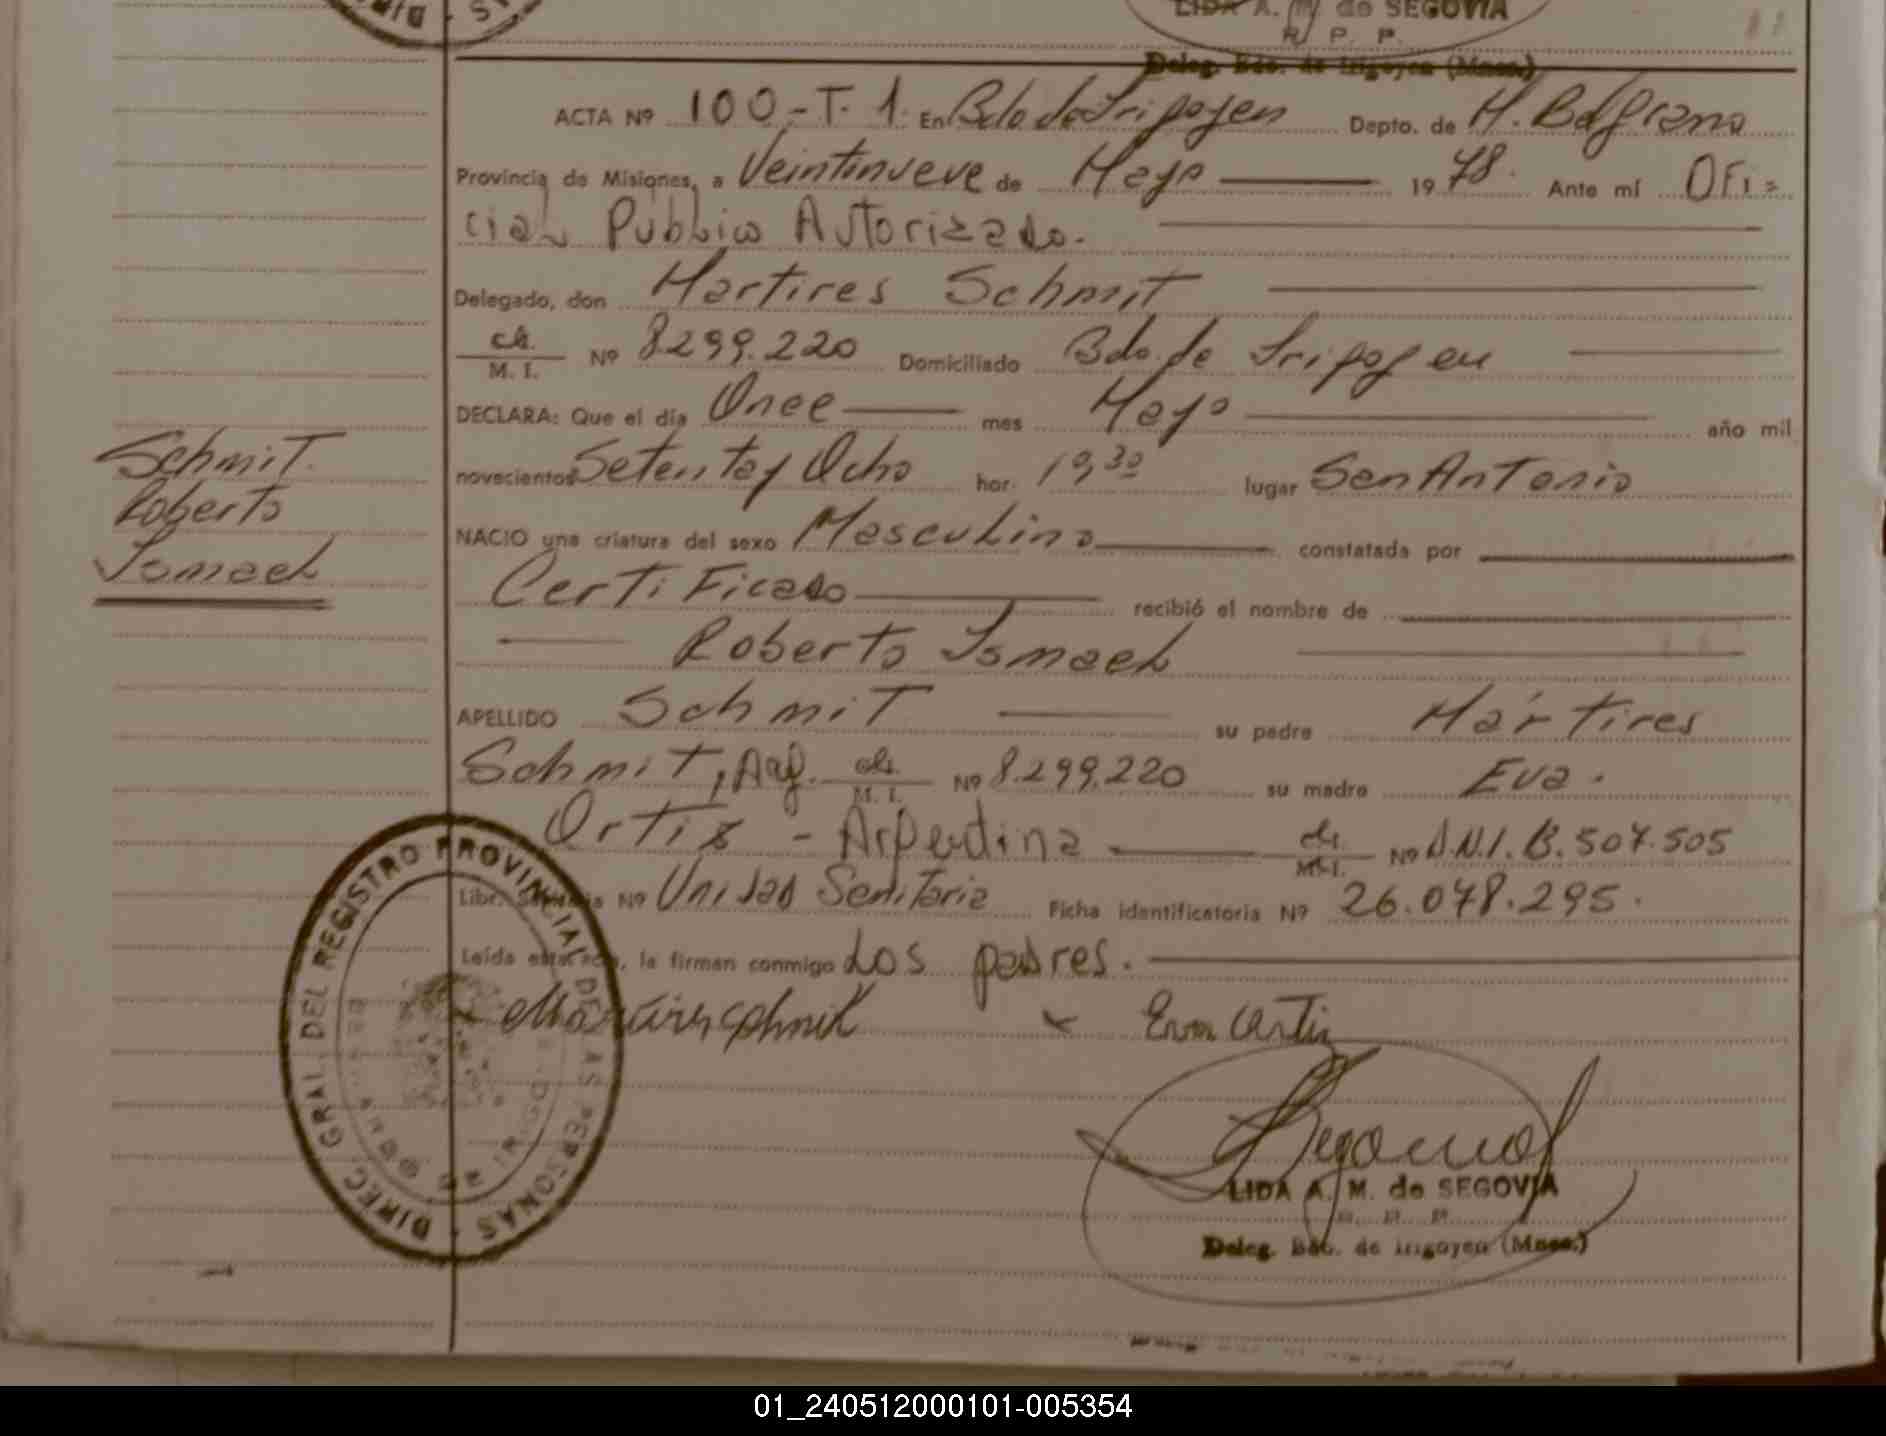 LIDA A. M. de SEGOVIA
R. P. P.
Deleg. Bdo. de Irigoyen (Mnes.)
ACTA Nº 100-T. 1. En Bdo de Irigoyen Depto. de M. Belgrano
Provincia de Misiones, a Veintinueve de Mayo 1978. Ante mí OFi=
cial Público Autorizado.
Delegado, don Martires Schmit
ch.
M. I. Nº 8.299.220 Domiciliado Bdo. de Irigoyen
DECLARA: Que el día Once mes Mayo año mil
novecientos Setenta y Ocho hor. 10,30 lugar San Antonio
Schmit.
Roberto
Ismael
NACIO una criatura del sexo Masculino constatada por
Certificado recibió el nombre de
Roberto Ismael
APELLIDO Schmit su padre Mártires
Schmit, Arg. ch. M. I. Nº 8.299.220 su madre Eva.
Ortiz - Argentina ch. M. I. Nº D.N.I. 13.507.505
Libr. Sanitaria Nº Unidad Sanitaria Ficha identificatoria Nº 26.078.295.
Leída esta acta, la firman conmigo Los padres.
x Eva Ortiz
DIREC. GRAL. DEL REGISTRO PROVINCIAL DE LAS PERSONAS
LIDA A. M. de SEGOVIA
R. P. P.
Deleg. Bdo. de Irigoyen (Mnes.)
01_240512000101-005354